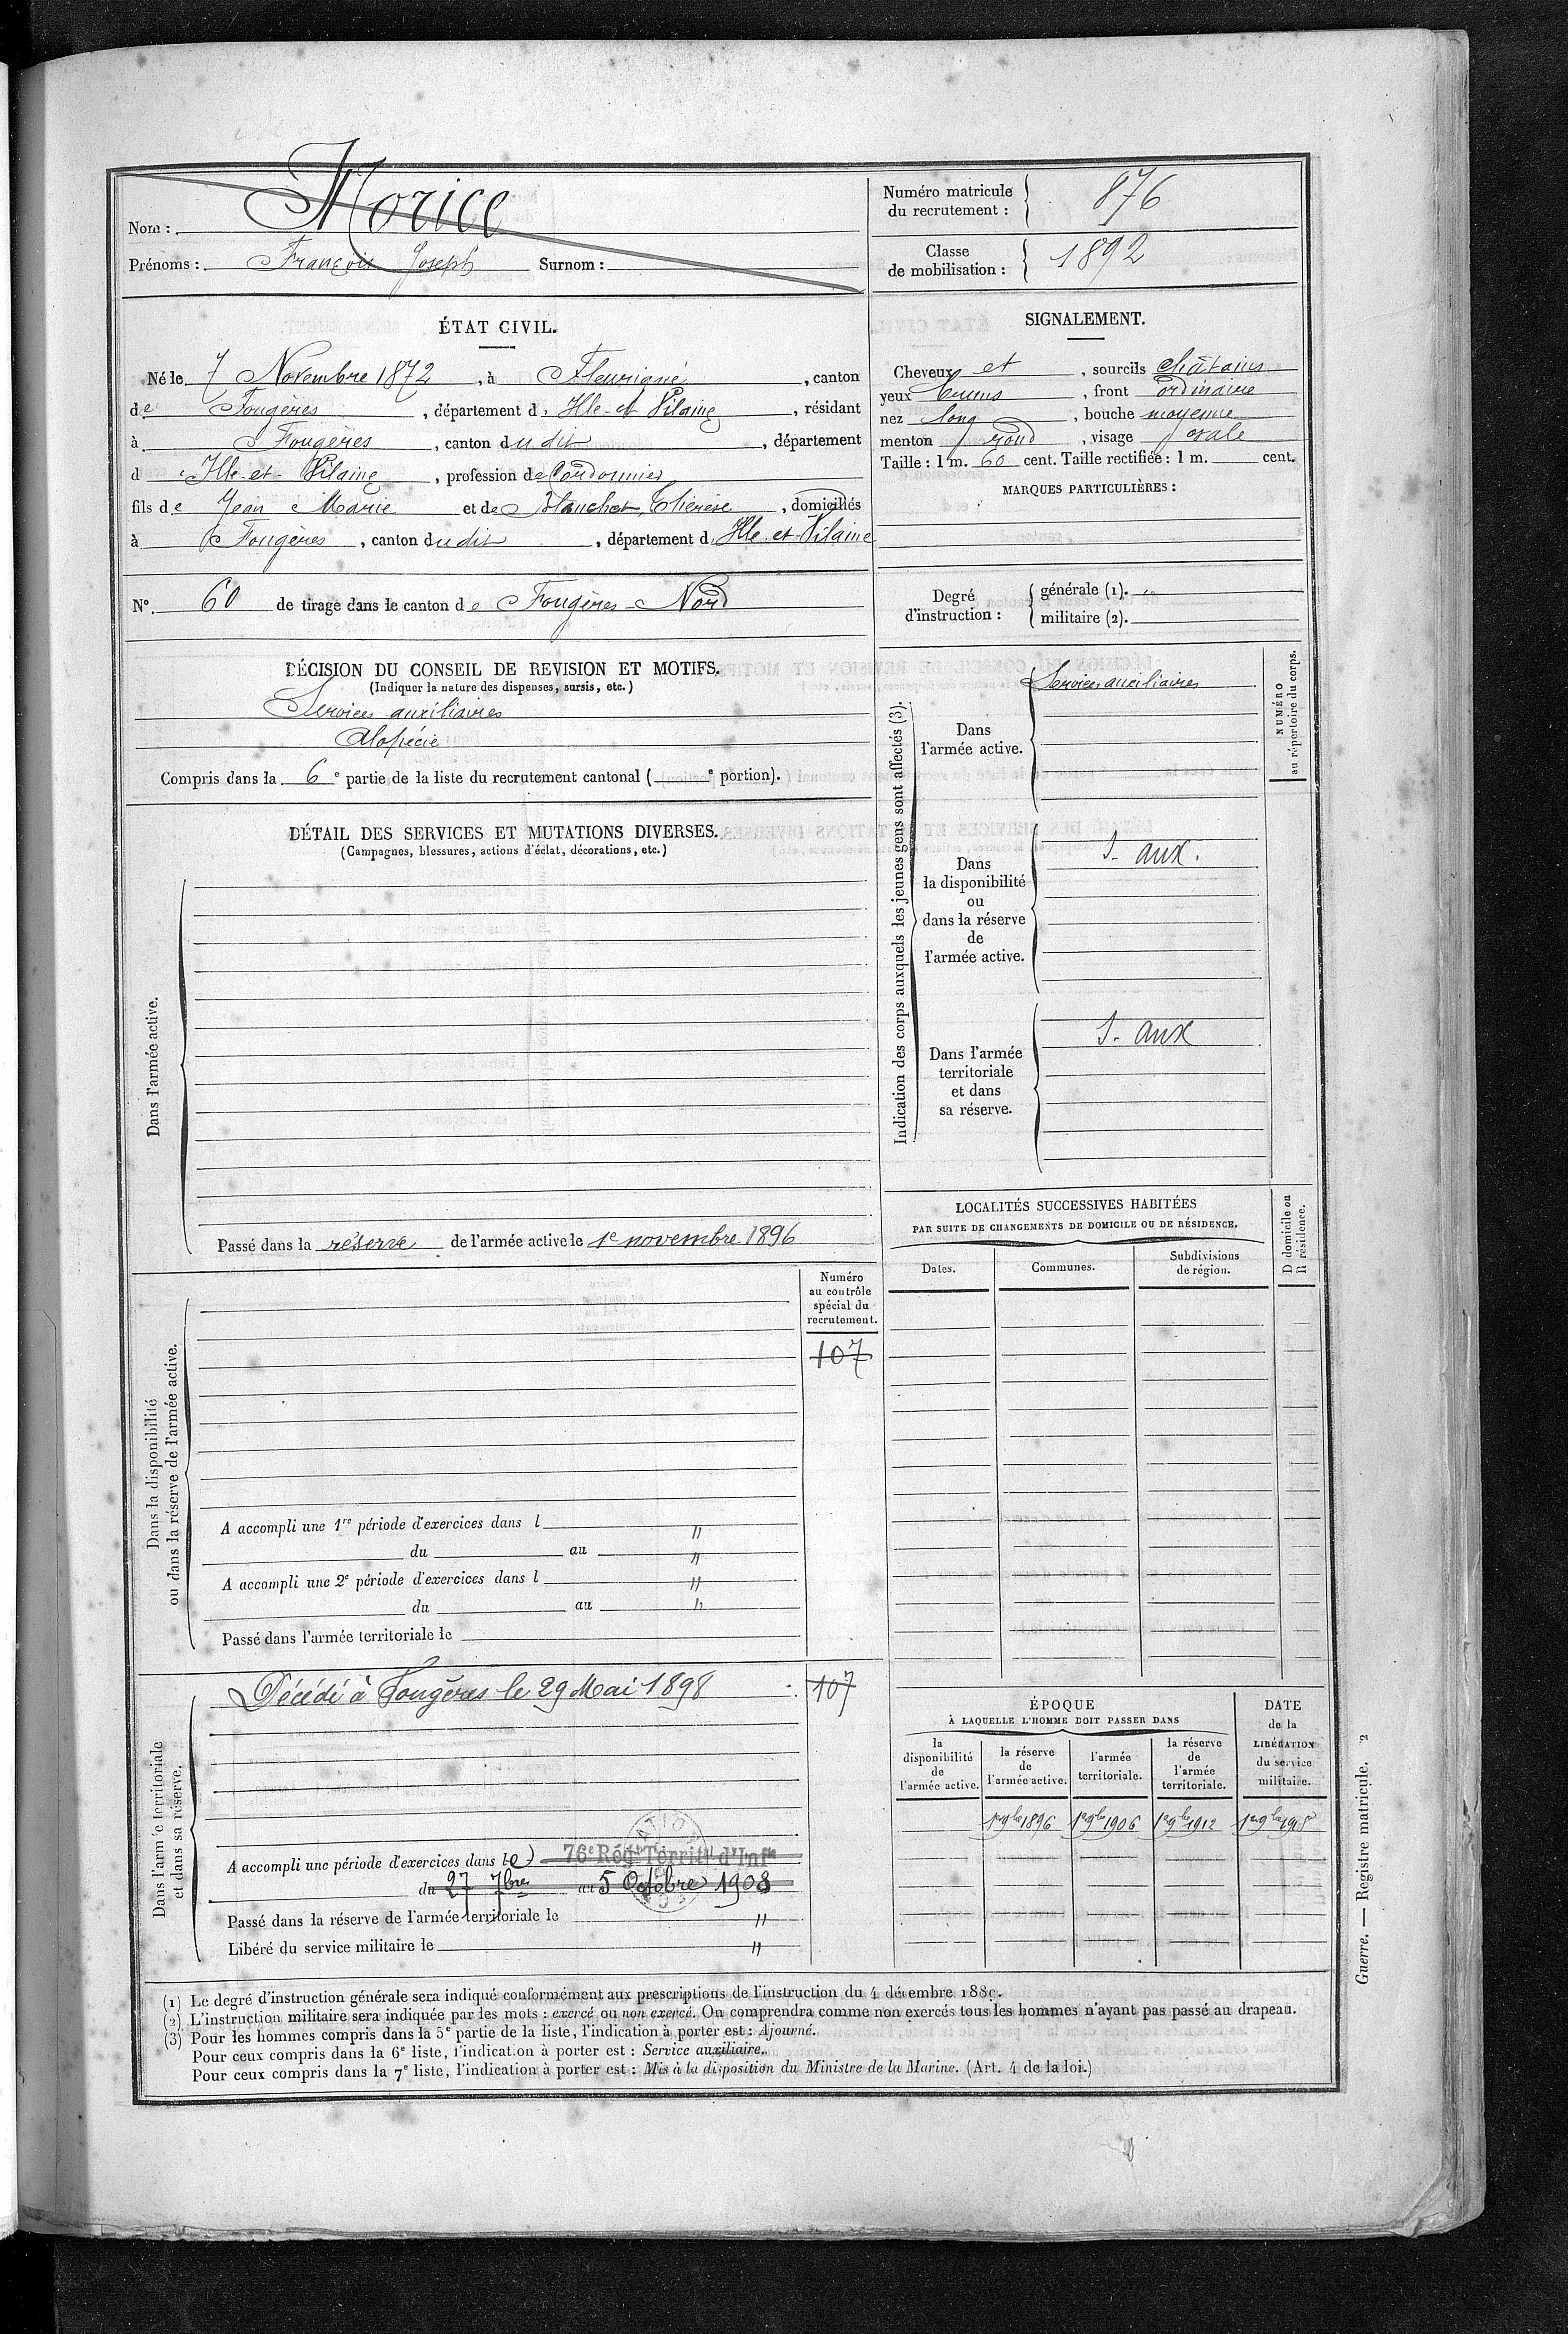 Nom : Morice
Prénoms : François Joseph Surnom :
Numéro matricule du recrutement : 876
Classe de mobilisation : 1892
ÉTAT CIVIL.
Né le 7 Novembre 1872, à Fleurigné, canton
de Fougères, département d'Ille-et-Vilaine, résidant
à Fougères, canton dudit, département
d'Ille-et-Vilaine, profession de Cordonnier
fils de Jean Marie et de Blanchet, Thérèse, domiciliés
à Fougères, canton dudit, département d'Ille-et-Vilaine
N° 60 de tirage dans le canton de Fougères-Nord
SIGNALEMENT.
Cheveux et, sourcils châtains
yeux bruns, front ordinaire
nez long, bouche moyenne
menton rond, visage ovale
Taille : 1 m. 60 cent. Taille rectifiée : 1 m. cent.
MARQUES PARTICULIÈRES :
Degré d'instruction : générale (1). "
militaire (2).
DÉCISION DU CONSEIL DE REVISION ET MOTIFS.
(Indiquer la nature des dispenses, sursis, etc.)
Services auxiliaires
Alopécie
Compris dans la 6e partie de la liste du recrutement cantonal ( e portion).
DÉTAIL DES SERVICES ET MUTATIONS DIVERSES.
(Campagnes, blessures, actions d'éclat, décorations, etc.)
Dans l'armée active.
Passé dans la réserve de l'armée active le 1e novembre 1896
Indication des corps auxquels les jeunes gens sont affectés (3).
NUMÉRO
au répertoire du corps.
Dans l'armée active.
Services auxiliaires
Dans la disponibilité ou dans la réserve de l'armée active.
S. aux.
Dans l'armée territoriale et dans sa réserve.
S. aux
LOCALITÉS SUCCESSIVES HABITÉES
PAR SUITE DE CHANGEMENTS DE DOMICILE OU DE RÉSIDENCE.
D domicile ou
R résidence.
Dates.
Communes.
Subdivisions de région.
Dans la disponibilité
ou dans la réserve de l'armée active.
Numéro
au contrôle
spécial du
recrutement.
107
A accompli une 1re période d'exercices dans l "
du au "
A accompli une 2e période d'exercices dans l "
du au "
Passé dans l'armée territoriale le
Dans l'armée territoriale
et dans sa réserve.
Décédé à Fougères le 29 Mai 1898
107
A accompli une période d'exercices dans le 76e Régt Territal d'Infie
du 27 7bre au 5 Octobre 1908
Passé dans la réserve de l'armée territoriale le "
Libéré du service militaire le "
ÉPOQUE
À LAQUELLE L'HOMME DOIT PASSER DANS
la disponibilité de l'armée active.
la réserve de l'armée active.
l'armée territoriale.
la réserve de l'armée territoriale.
DATE
de la
LIBÉRATION
du service
militaire.
1er 9bre 1896 1er 9bre 1906 1er 9bre 1912
(1) Le degré d'instruction générale sera indiqué conformément aux prescriptions de l'instruction du 4 décembre 1889.
(2) L'instruction militaire sera indiquée par les mots : exercé ou non exercé. On comprendra comme non exercés tous les hommes n'ayant pas passé au drapeau.
(3) Pour les hommes compris dans la 5e partie de la liste, l'indication à porter est : Ajourné.
Pour ceux compris dans la 6e liste, l'indication à porter est : Service auxiliaire.
Pour ceux compris dans la 7e liste, l'indication à porter est : Mis à la disposition du Ministre de la Marine. (Art. 4 de la loi.)
Guerre. — Registre matricule. 2